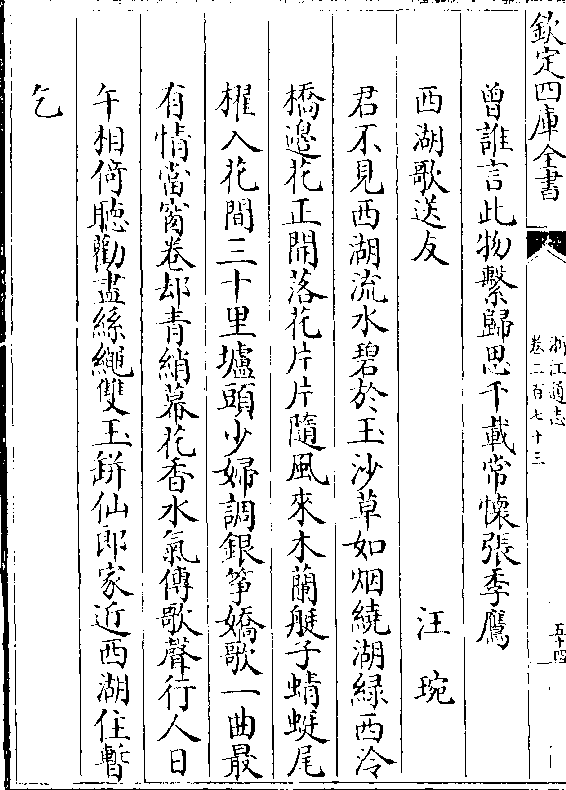 欽定四庫全書
浙江通志
卷二百七十三
五十四
曾誰言此物繫歸思千載常懷張季鷹
西湖歌送友 汪琬
君不見西湖流水碧於玉沙草如烟繞湖綠西泠
橋邊花正開落花片片隨風來木蘭艇子蜻蜓尾
櫂入花間三十里壚頭少婦調銀箏嬌歌一曲最
有情當窗卷却青綃幕花香水氣傳歌聲行人日
午相倚聴勸盡絲繩雙玉缾仙郎家近西湖住暫
乞